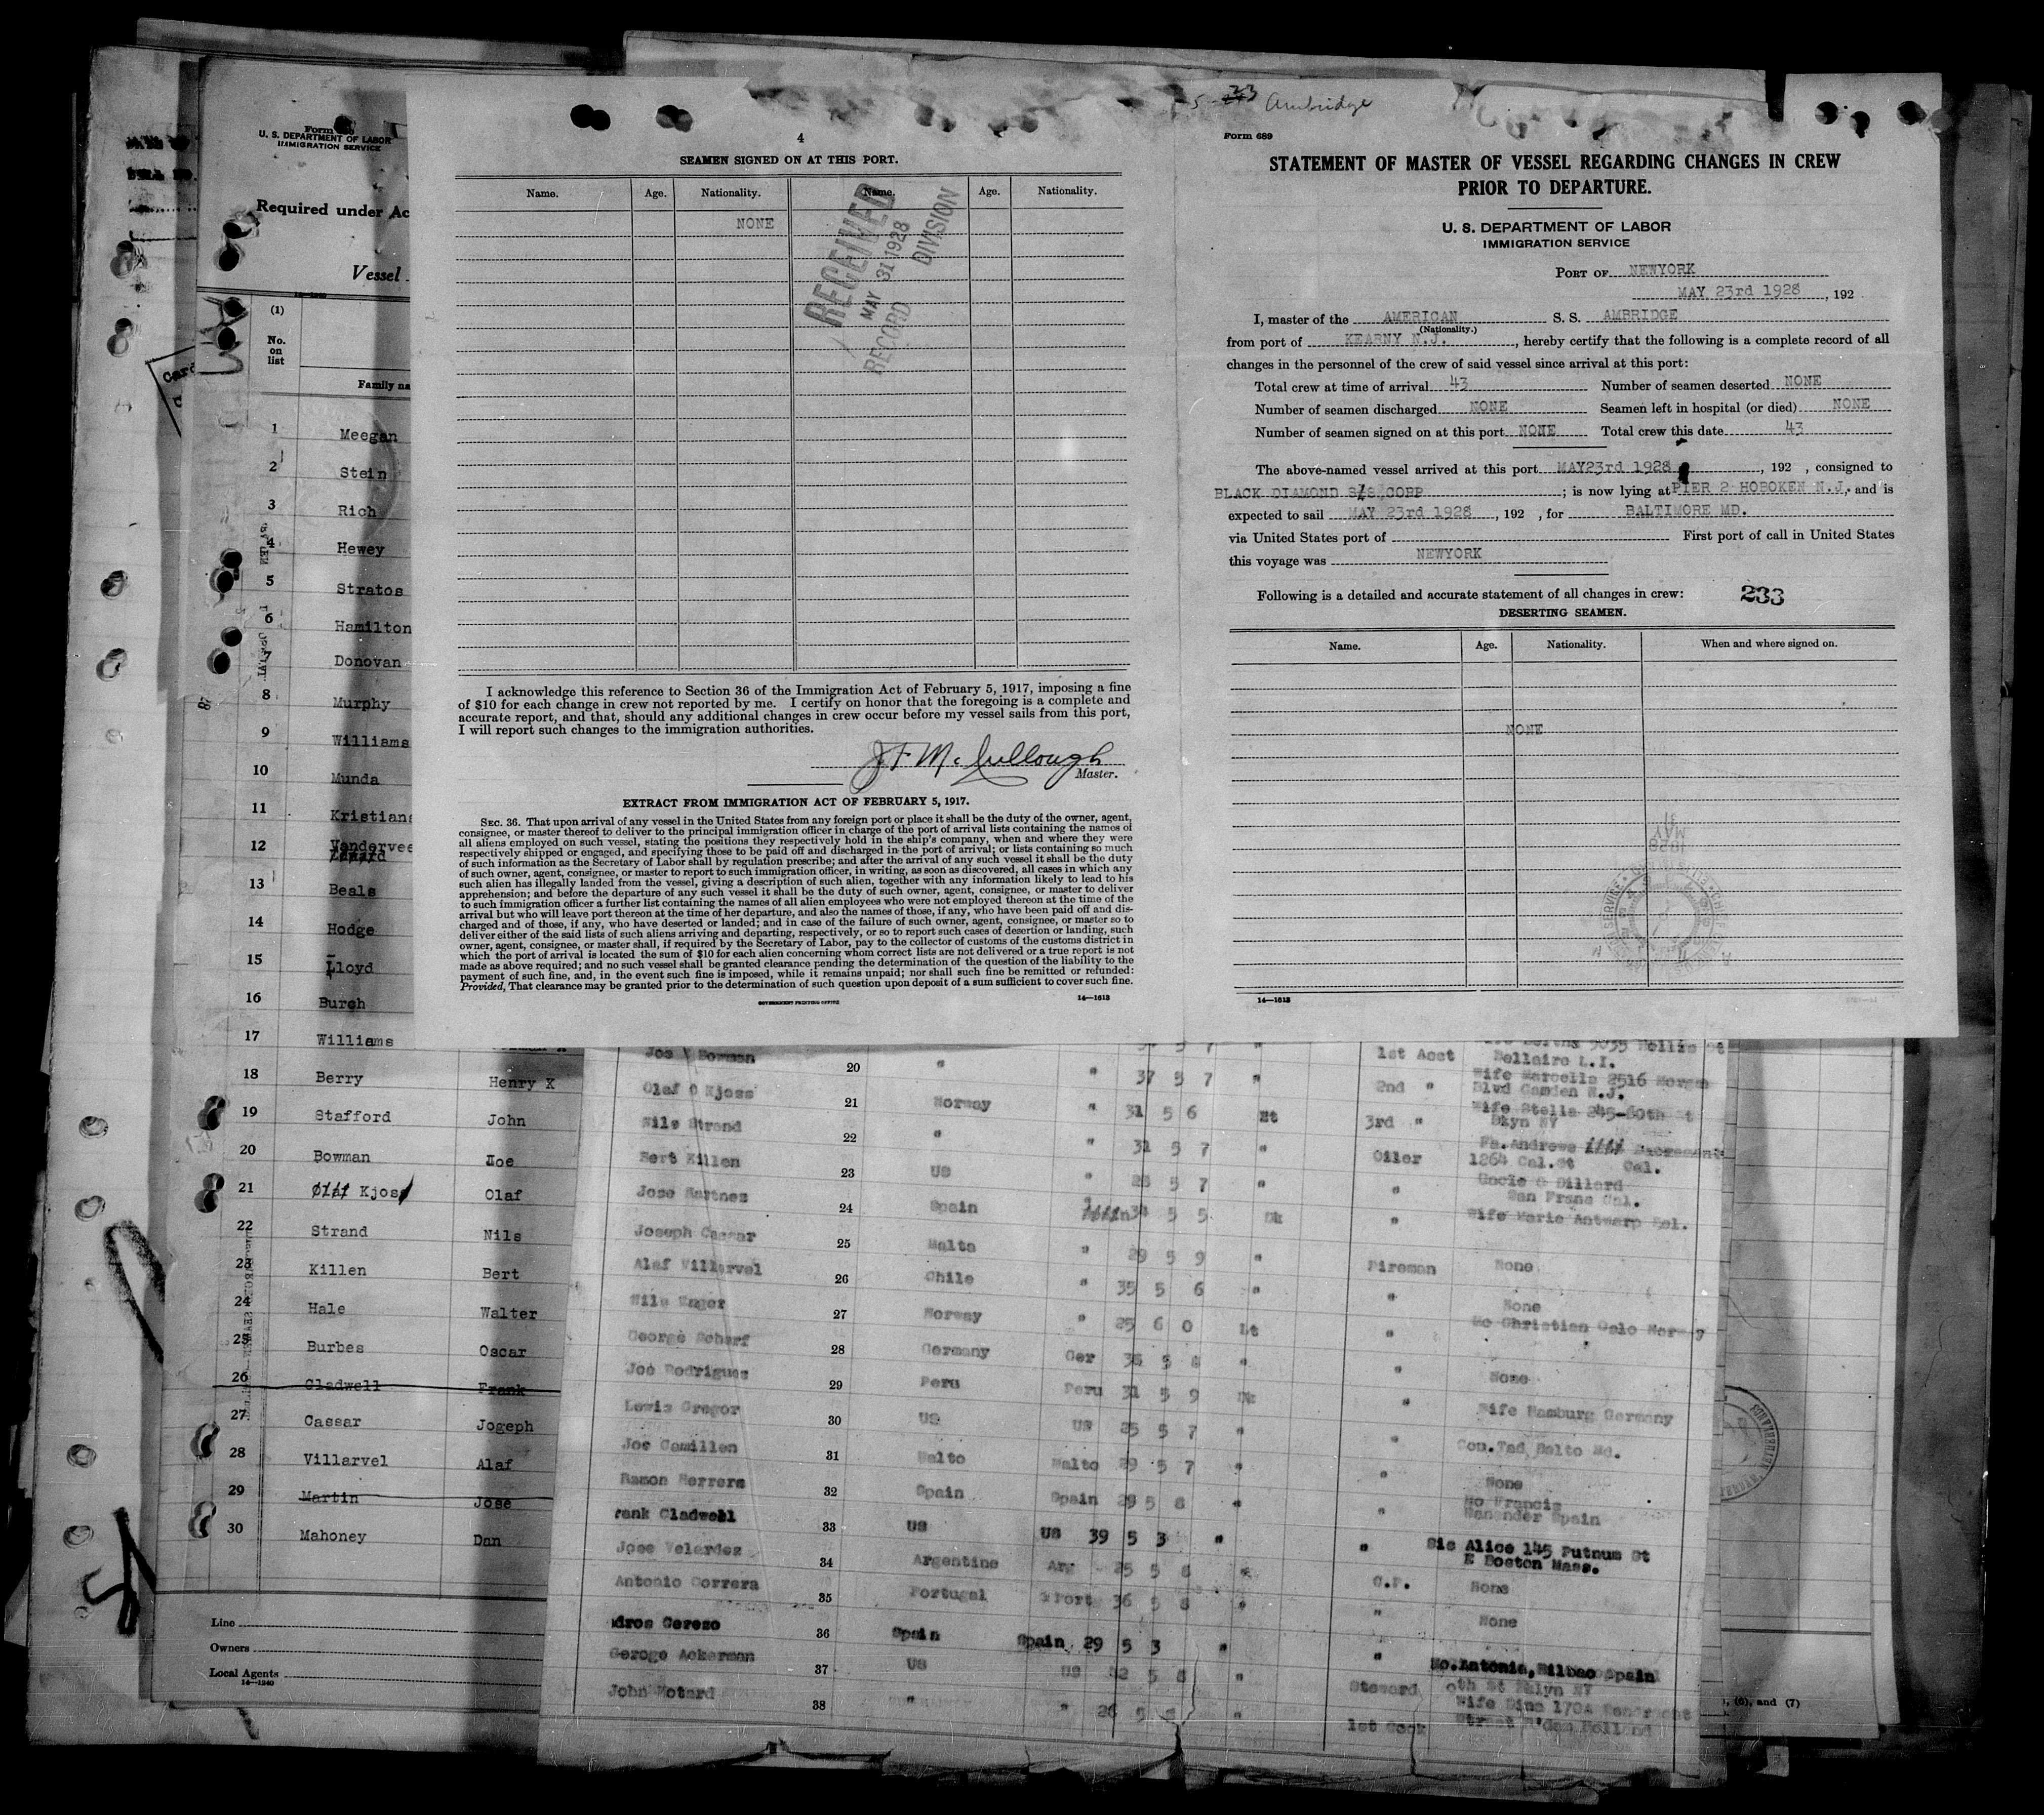 5-23 Ambridge
Form
U. S. DEPARTMENT OF LABOR
IMMIGRATION SERVICE
Required under Ac
Vessel
(1)
No.
on
list
Family na
1 Meegan
2 Stein
3 Rich
4 Hewey
5 Stratos
6 Hamilton
7 Donovan
8 Murphy
9 Williams
10 Munda
11 Kristians
12 Vandervee
13 Beals
14 Hodge
15 Lloyd
16 Burch
17 Williams
18 Berry Henry X
19 Stafford John
20 Bowman Joe
21 Olaf Kjoss Olaf
22 Strand Nils
23 Killen Bert
24 Hale Walter
25 Burbes Oscar
26 Gladwell Frank
27 Cassar Jogeph
28 Villarvel Alaf
29 Martin Jose
30 Mahoney Dan
Line
Owners
Local Agents
14—1240
4
SEAMEN SIGNED ON AT THIS PORT.
Name. Age. Nationality. Name. Age. Nationality.
NONE
RECEIVED
MAY 31 1928
RECORD DIVISION
I acknowledge this reference to Section 36 of the Immigration Act of February 5, 1917, imposing a fine
of $10 for each change in crew not reported by me. I certify on honor that the foregoing is a complete and
accurate report, and that, should any additional changes in crew occur before my vessel sails from this port,
I will report such changes to the immigration authorities.
J F McCullough
Master.
EXTRACT FROM IMMIGRATION ACT OF FEBRUARY 5, 1917.
SEC. 36. That upon arrival of any vessel in the United States from any foreign port or place it shall be the duty of the owner, agent,
consignee, or master thereof to deliver to the principal immigration officer in charge of the port of arrival lists containing the names of
all aliens employed on such vessel, stating the positions they respectively hold in the ship's company, when and where they were
respectively shipped or engaged, and specifying those to be paid off and discharged in the port of arrival; or lists containing so much
of such information as the Secretary of Labor shall by regulation prescribe; and after the arrival of any such vessel it shall be the duty
of such owner, agent, consignee, or master to report to such immigration officer, in writing, as soon as discovered, all cases in which any
such alien has illegally landed from the vessel, giving a description of such alien, together with any information likely to lead to his
apprehension; and before the departure of any such vessel it shall be the duty of such owner, agent, consignee, or master to deliver
to such immigration officer a further list containing the names of all alien employees who were not employed thereon at the time of the
arrival but who will leave port thereon at the time of her departure, and also the names of those, if any, who have been paid off and dis-
charged and of those, if any, who have deserted or landed; and in case of the failure of such owner, agent, consignee, or master so to
deliver either of the said lists of such aliens arriving and departing, respectively, or so to report such cases of desertion or landing, such
owner, agent, consignee, or master shall, if required by the Secretary of Labor, pay to the collector of customs of the customs district in
which the port of arrival is located the sum of $10 for each alien concerning whom correct lists are not delivered or a true report is not
made as above required; and no such vessel shall be granted clearance pending the determination of the question of the liability to the
payment of such fine, and, in the event such fine is imposed, while it remains unpaid; nor shall such fine be remitted or refunded:
Provided, That clearance may be granted prior to the determination of such question upon deposit of a sum sufficient to cover such fine.
GOVERNMENT PRINTING OFFICE 14—1613
Form 689
STATEMENT OF MASTER OF VESSEL REGARDING CHANGES IN CREW
PRIOR TO DEPARTURE.
U. S. DEPARTMENT OF LABOR
IMMIGRATION SERVICE
PORT OF NEWYORK
MAY 23rd 1928, 192
I, master of the AMERICAN S. S. AMBRIDGE
(Nationality.)
from port of KEARNY N.J., hereby certify that the following is a complete record of all
changes in the personnel of the crew of said vessel since arrival at this port:
Total crew at time of arrival 43 Number of seamen deserted NONE
Number of seamen discharged NONE Seamen left in hospital (or died) NONE
Number of seamen signed on at this port NONE Total crew this date 43
The above-named vessel arrived at this port MAY23rd 1928, 192 , consigned to
BLACK DIAMOND S/S CORP; is now lying at PIER 2 HOBOKEN N.J., and is
expected to sail MAY 23rd 1928, 192 , for BALTIMORE MD.
via United States port of First port of call in United States
this voyage was NEWYORK
Following is a detailed and accurate statement of all changes in crew: 233
DESERTING SEAMEN.
Name. Age. Nationality. When and where signed on.
NONE
MAY
31
1928
14—1613
Jos Bowman 20 " 5 7 " 1st Asst Bellaire L.I.
Olaf O Kjoss 21 Norway " 37 5 7 " 2nd " Wife Marcella 2516 Morgan
Blvd Camden N.J.
Nils Strand 22 " " 31 5 6 Lt 3rd " Wife Stella 245-60th St
Bkyn NY
Bert Killen 23 US " 31 5 7 " Oiler Fa. Andrews Sacramento
1264 Cal.St Cal.
Jose Martnes 24 Spain 5 7 " " San Franc Cal.
Joseph Cassar 25 Malta " 34 5 5 Dk " Wife Marie Antwarp Bel.
Alaf Villarvel 26 Chile " 29 5 9 " Fireman None
27 Norway " 35 5 6 " " None
George Scharf 28 Germany Ger 25 6 0 Lt " Mo Christian Oslo Norway
Joe Rodrigues 29 Peru Peru 36 5 8 " " None
Lewis Gregor 30 US US 31 5 9 Dk " Wife Hamburg Germany
Joe Camillen 31 Malto Malto 25 5 7 " " Balto Md.
Ramon Herrera 32 Spain Spain 29 5 7 " " None
29 5 8 " " Mo Francis
Spain
rank Gladwell 33 US US 39 5 3 " " Sis Alice 145 Putnum St
E Boston Mass.
Jose Velardez 34 Argentine Arg 25 5 8 " C.P. None
Antonio Correra 35 Portugal Port 36 5 8 " " None
dros Cerezo 36 Spain Spain 29 5 3 " " Mo.Antonia, Bilbao Spain
Geroge Ackerman 37 US US 5 8 " Steward th St Bklyn NY
John Motard 38 " " 26 5 " 1st Cook Wife Dina 170A
Street R'dam Holland
, (6), and (7)